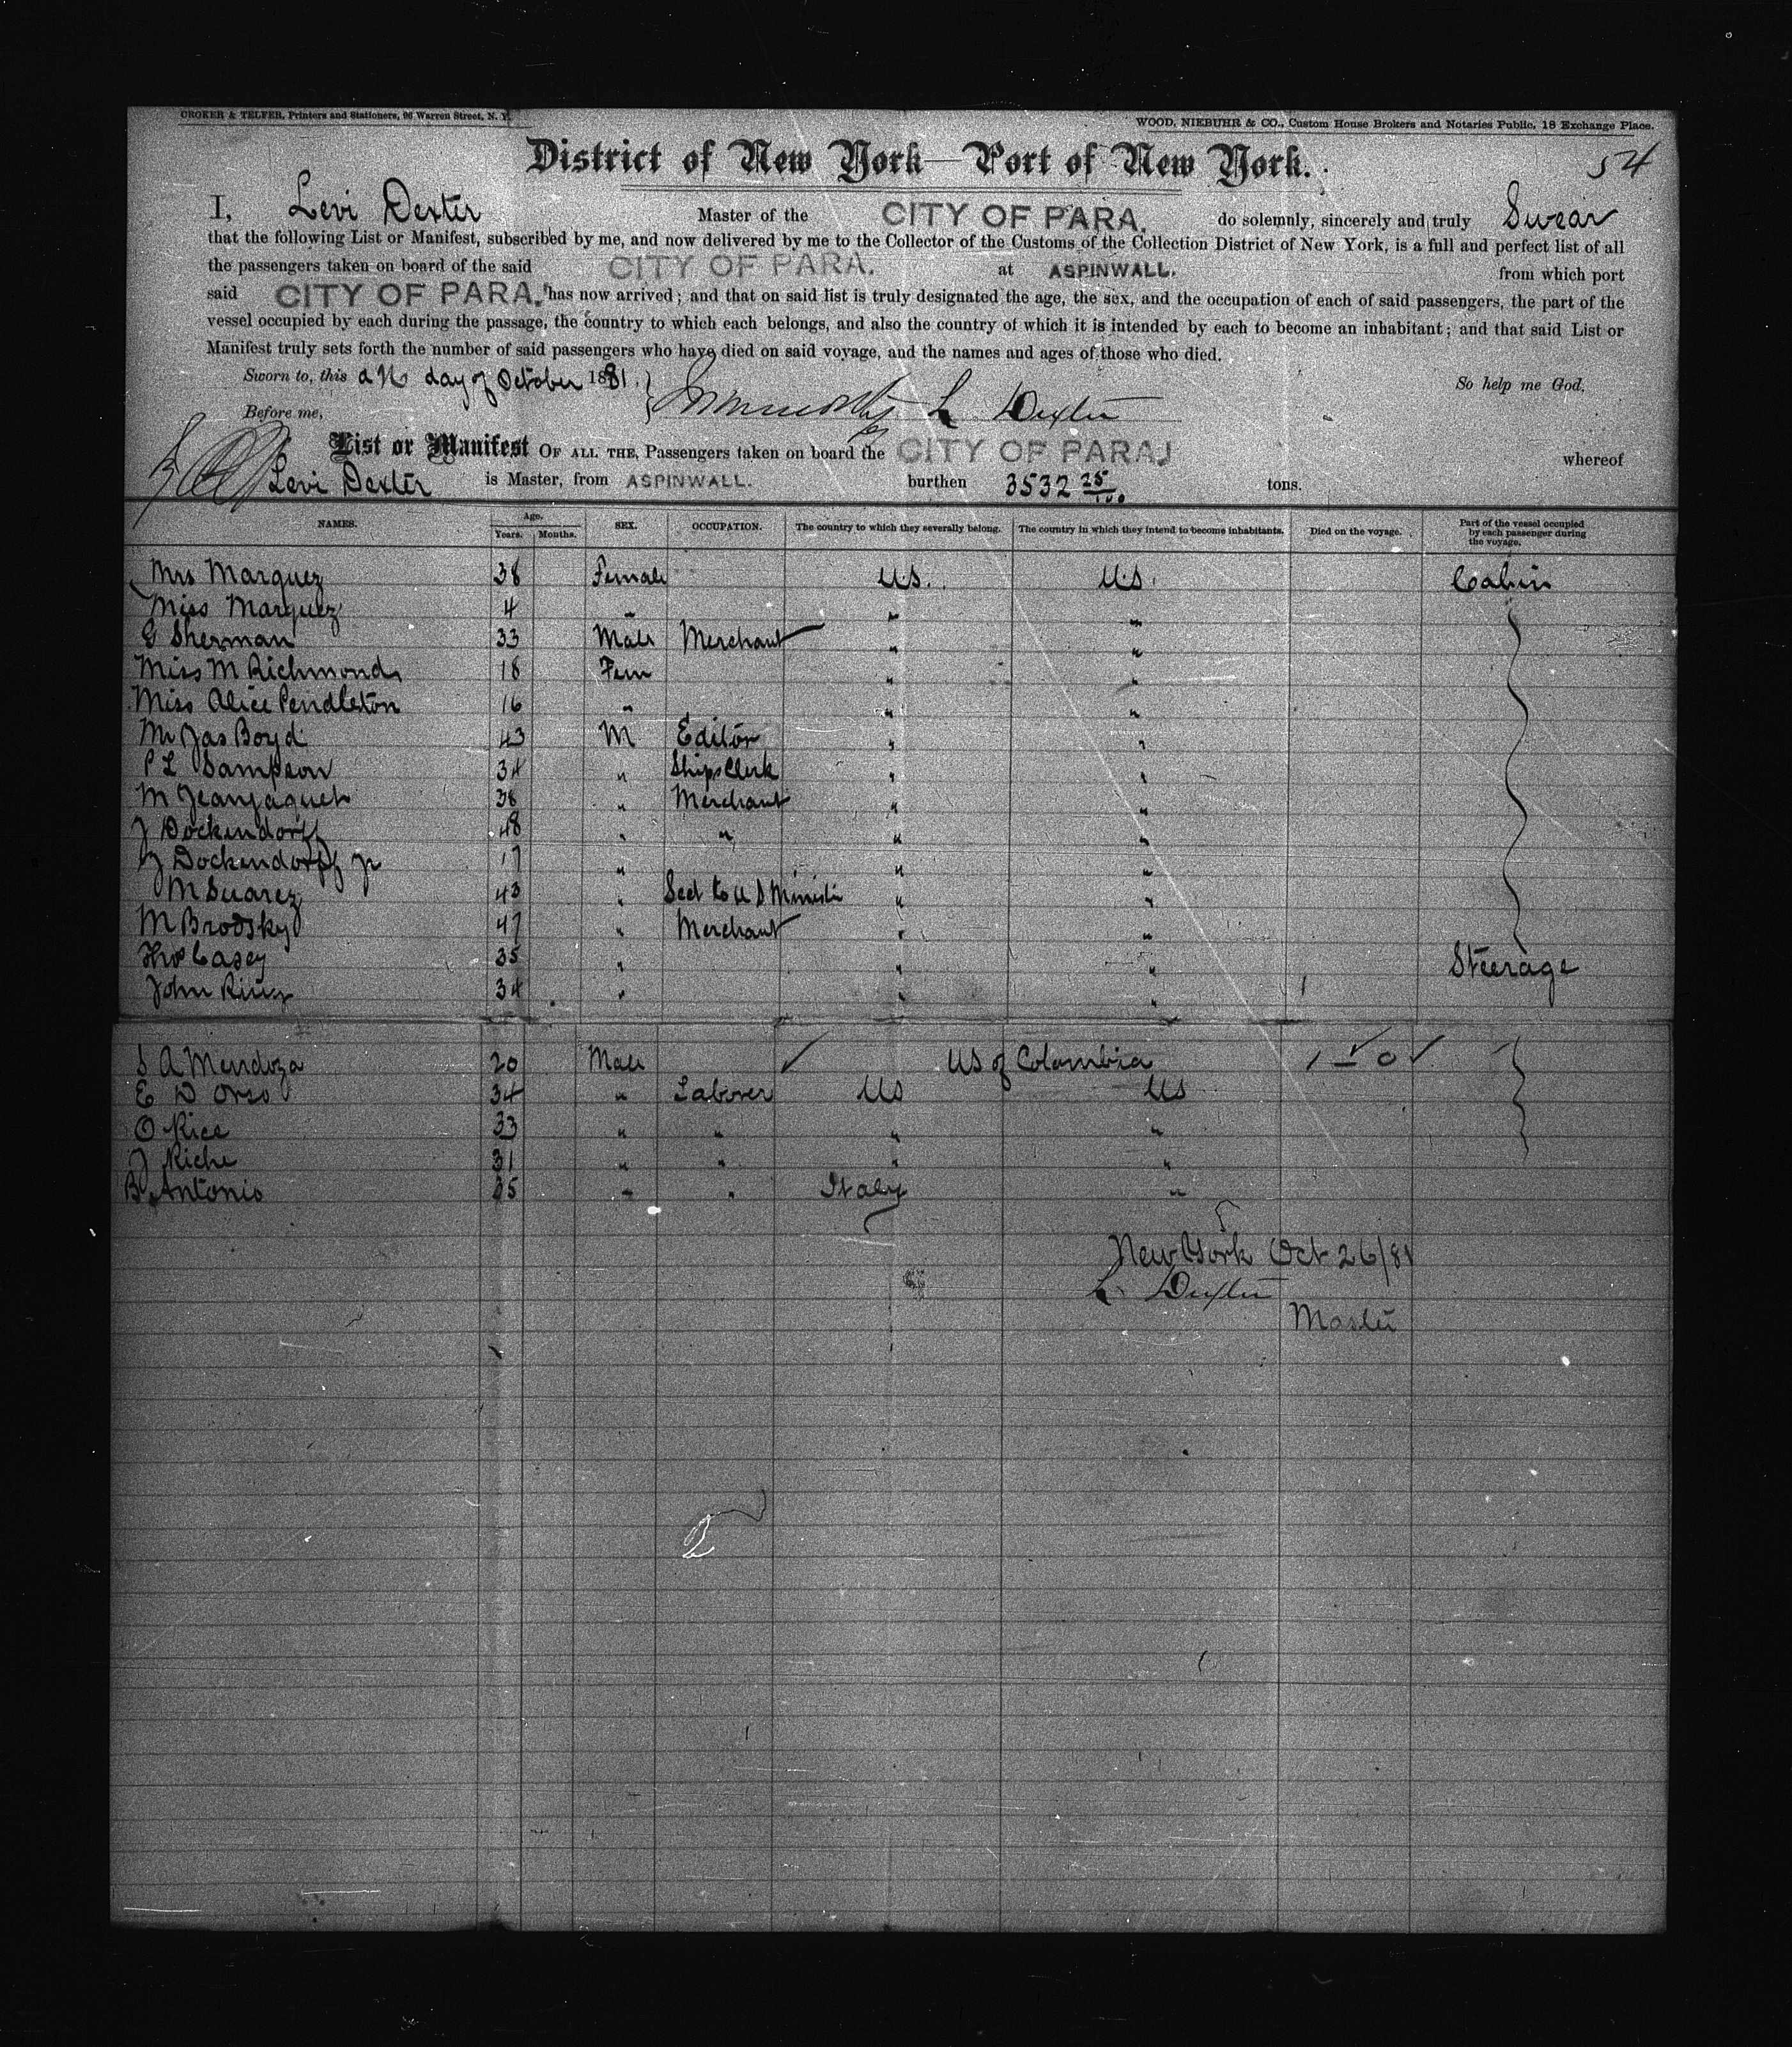 CROKER & TELFER, Printers and Stationers, 96 Warren Street, N. Y.
WOOD, NIEBUHR & CO., Custom House Brokers and Notaries Public, 18 Exchange Place.
District of New York—Port of New York.
54
I, Levi Dexter Master of the CITY OF PARA. do solemnly, sincerely and truly Swear
that the following List or Manifest, subscribed by me, and now delivered by me to the Collector of the Customs of the Collection District of New York, is a full and perfect list of all
the passengers taken on board of the said CITY OF PARA. at ASPINWALL. from which port
said CITY OF PARA. has now arrived; and that on said list is truly designated the age, the sex, and the occupation of each of said passengers, the part of the
vessel occupied by each during the passage, the country to which each belongs, and also the country of which it is intended by each to become an inhabitant; and that said List or
Manifest truly sets forth the number of said passengers who have died on said voyage, and the names and ages of those who died.
Sworn to, this day of October 1881. So help me God.
Before me, L Dexter
List or Manifest OF ALL THE Passengers taken on board the CITY OF PARA whereof
Levi Dexter is Master, from ASPINWALL. burthen 3532 25/100 tons.
NAMES. Age. Years. Months. SEX. OCCUPATION. The country to which they severally belong. The country in which they intend to become inhabitants. Died on the voyage. Part of the vessel occupied by each passenger during the voyage.
Mrs Marquez 38 Female U.S. U.S. Cabin
Miss Marquez 4 " " "
G Sherman 33 Male Merchant " "
Miss M Richmond 18 Fem " "
Miss Alice Pendleton 16 " " "
Mr Jas Boyd 43 M Editor " "
P L Sampson 34 " Ships Clerk " "
M Jeanjaquet 38 " Merchant " "
J Dockendorff 48 " " " "
J Dockendorff Jr 17 " " "
M Suarez 43 " Sect to U S Ministr " "
M Brodsky 47 " Merchant " "
Thos Casey 35 " " " Steerage
John King 34 " " "
S A Mendoza 20 Male US of Colombia
E D Orso 34 " Laborer US US
O Rice 33 " " " "
J Riche 31 " " " "
B Antonio " " Italy "
New York Oct 26/81
L Dexter
Master